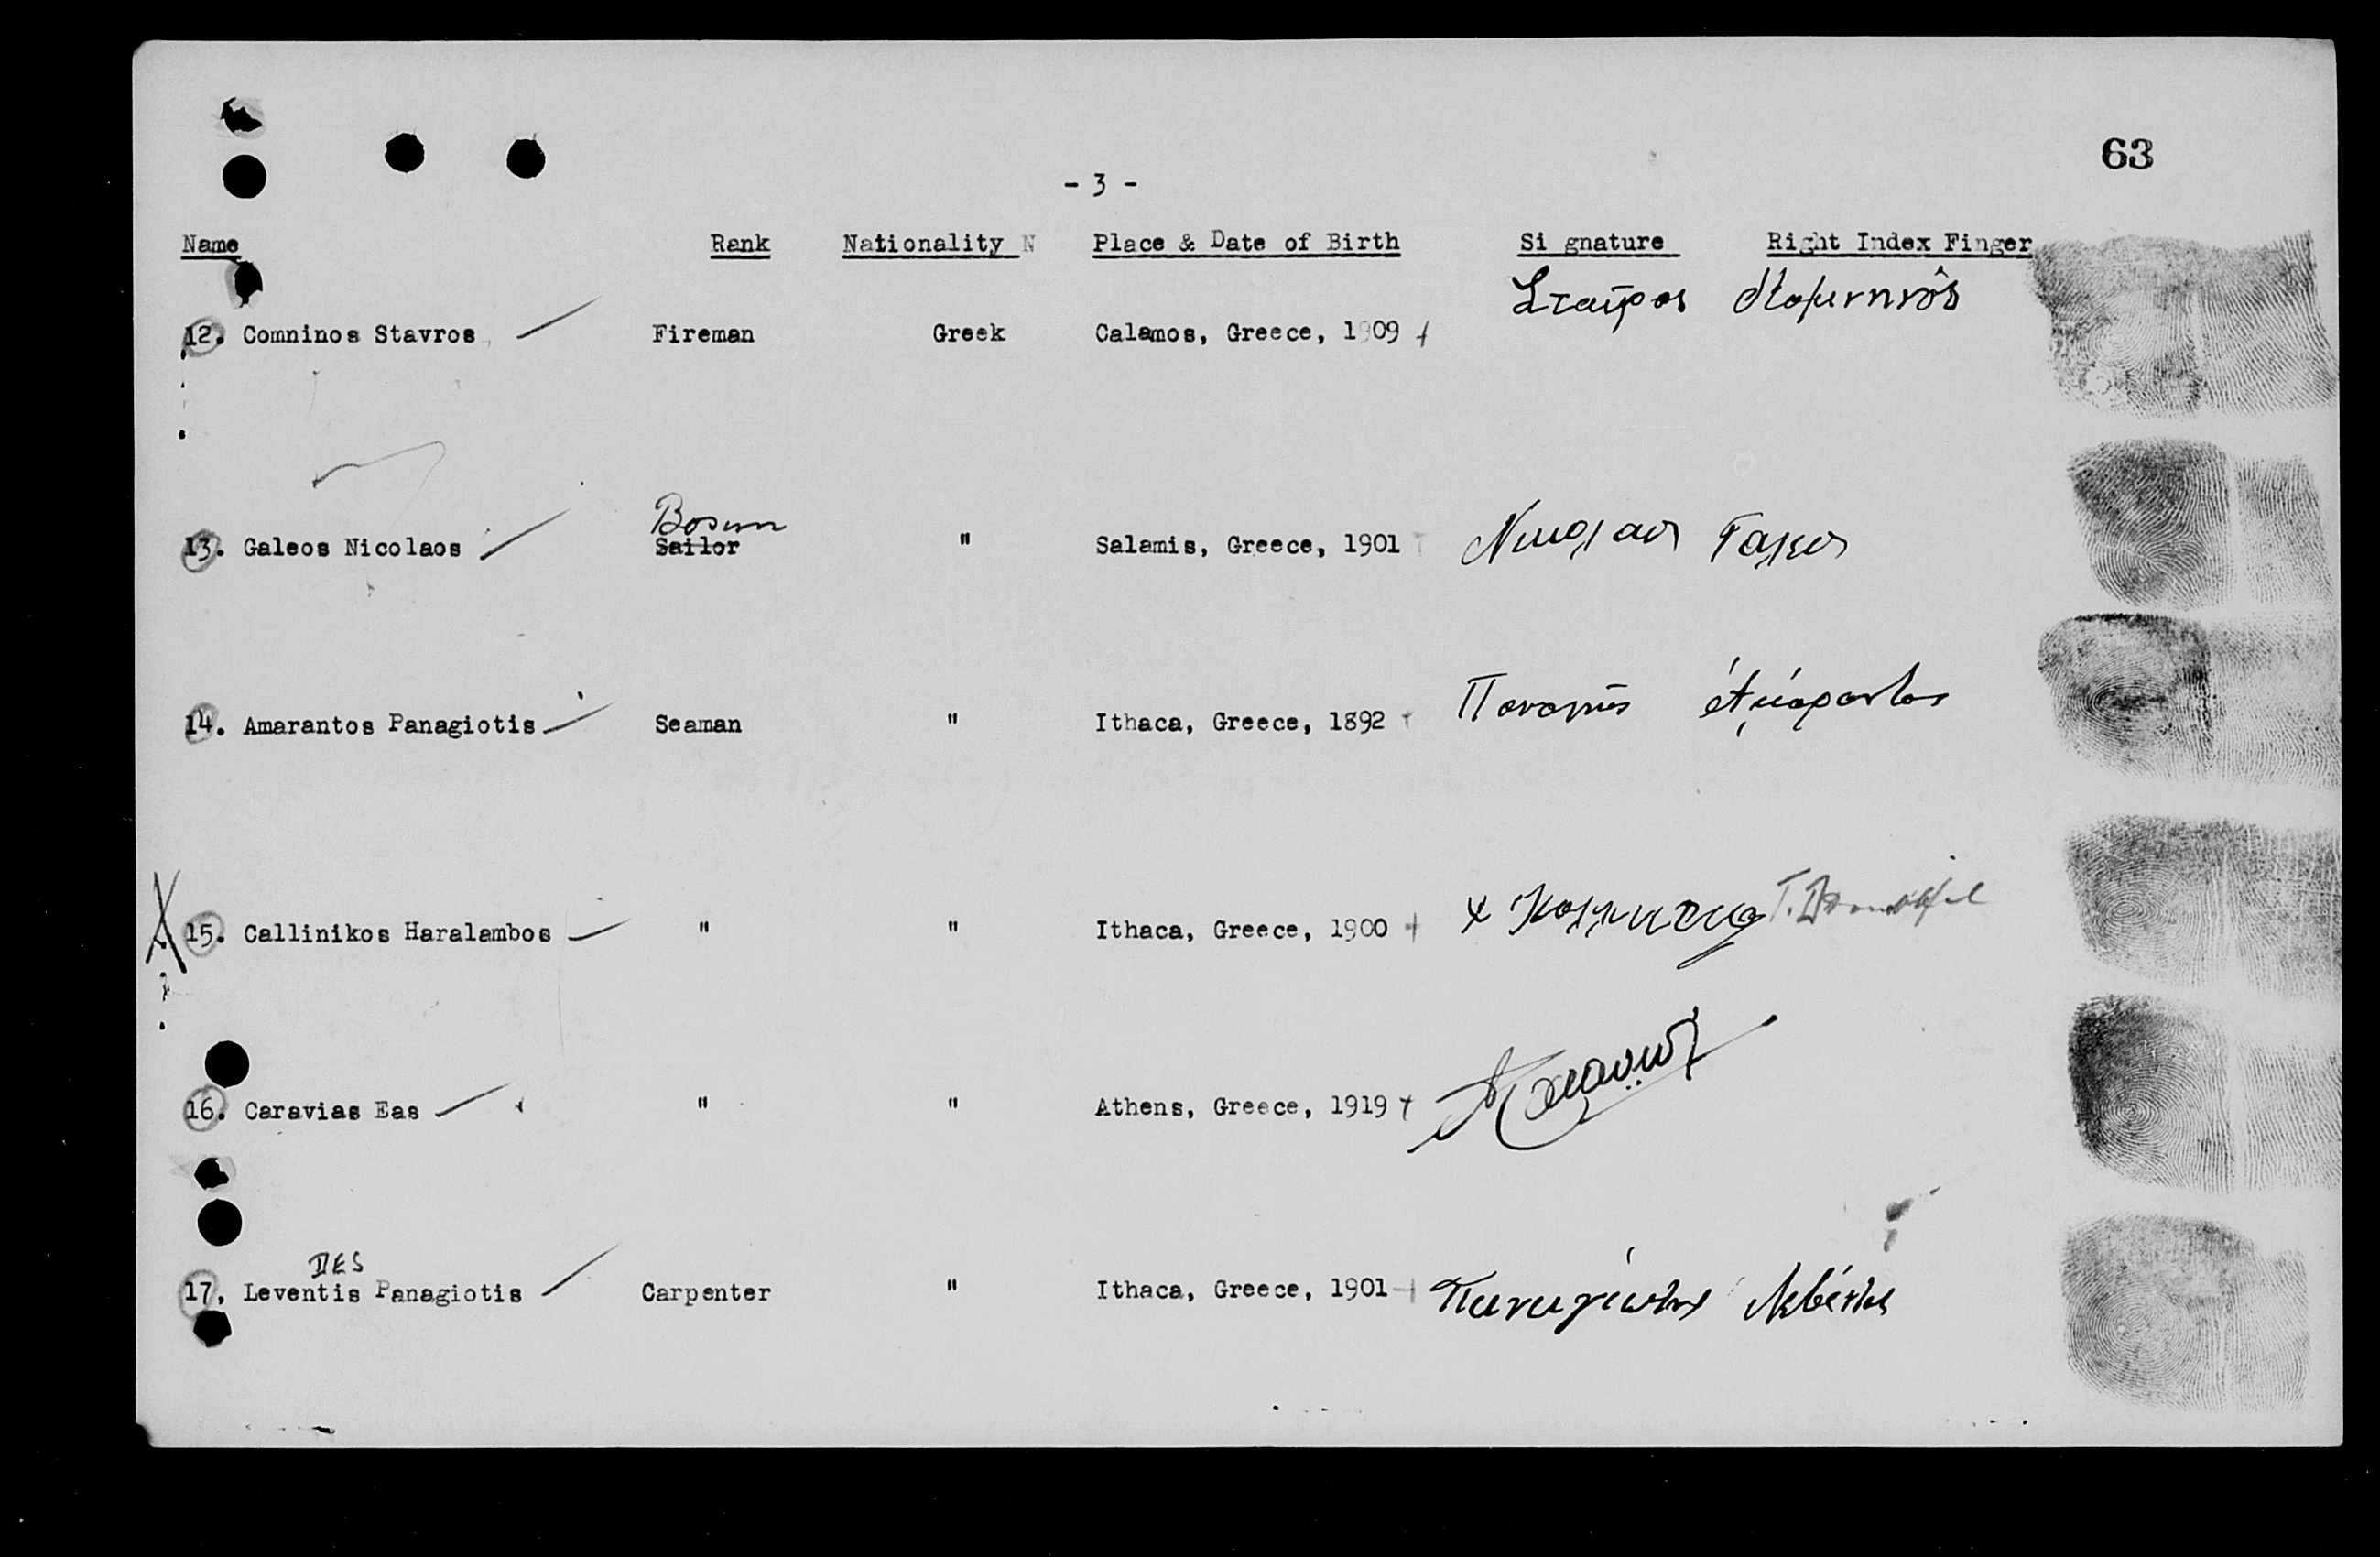 63
- 3 -
Name Rank Nationality N Place & Date of Birth Si gnature Right Index Finger
Σταῦρος Κομνηνός
12. Comninos Stavros Fireman Greek Calamos, Greece, 1909
Bosun
13. Galeos Nicolaos Sailor " Salamis, Greece, 1901 Νικολαος Γαλεος
14. Amarantos Panagiotis Seaman " Ithaca, Greece, 1892 Παναγής Ἀμάραντος
15. Callinikos Haralambos " " Ithaca, Greece, 1900
16. Caravias Eas " " Athens, Greece, 1919
DES
17, Leventis Panagiotis Carpenter " Ithaca, Greece, 1901 Παναγιώτης Λεβέντης